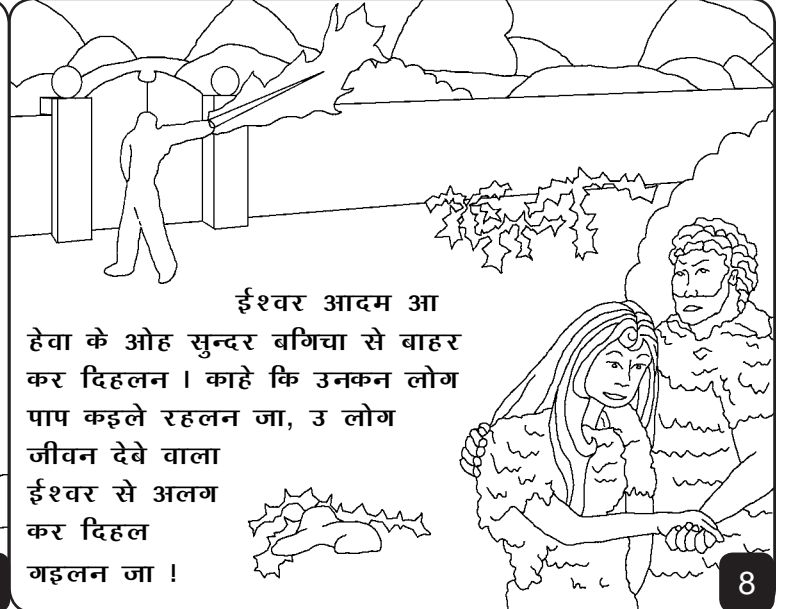 ईश्वर आदम आ
हेवा के ओह सुन्दर बगिचा से बाहर
कर दिहलन । काहे कि उनकन लोग
पाप कइले रहलन जा, उ लोग
जीवन देबे वाला
ईश्वर से अलग
कर दिहल
गइलन जा !
8